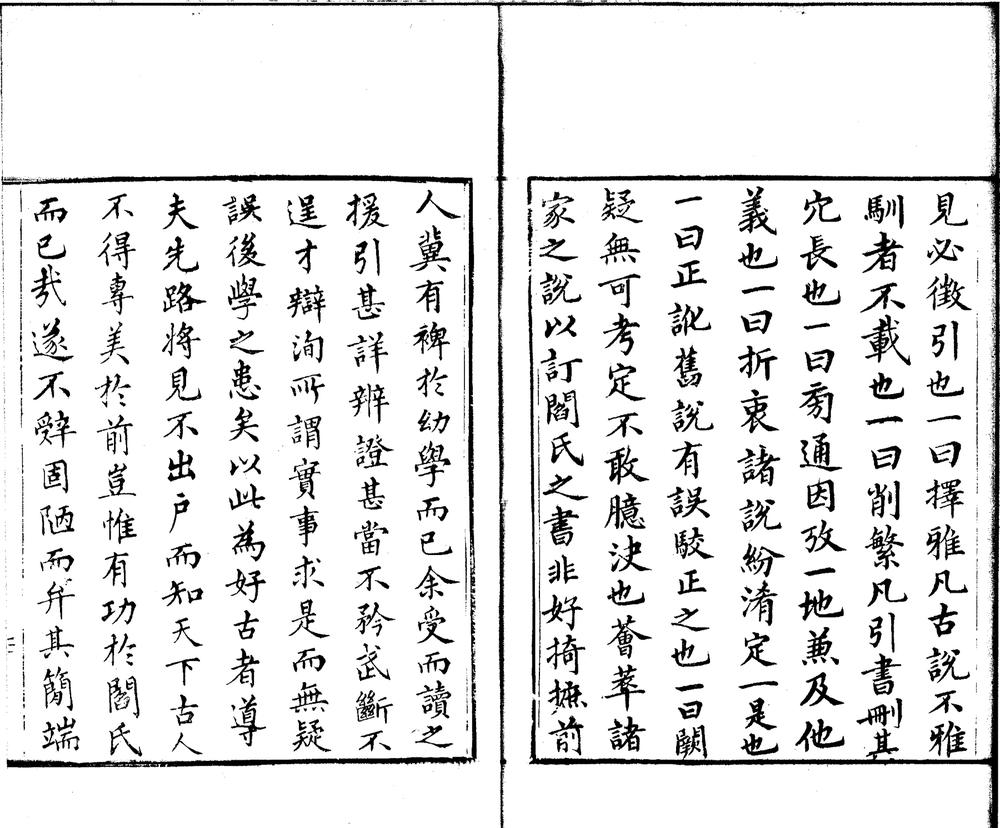 見必徵引也一曰擇雅凡古說不雅
馴者不載也一曰削繁凡引書刪其
宂長也一曰旁通因攷一地兼及他
義也一曰折衷諸說紛淆定一是也
一曰正訛舊說有誤駮正之也一曰闕
疑無可考定不敢臆決也薈萃諸
家之說以訂閻氏之書非好掎摭前
人冀有裨於幼學而已余受而讀之
援引甚詳辨證甚當不矜武斷不
逞才辯洵所謂實事求是而無疑
誤後學之患矣以此為好古者導
夫先路將見不出戶而知天下古人
不得專美於前豈惟有功於閻氏
而已哉遂不辭固陋而弁其簡端